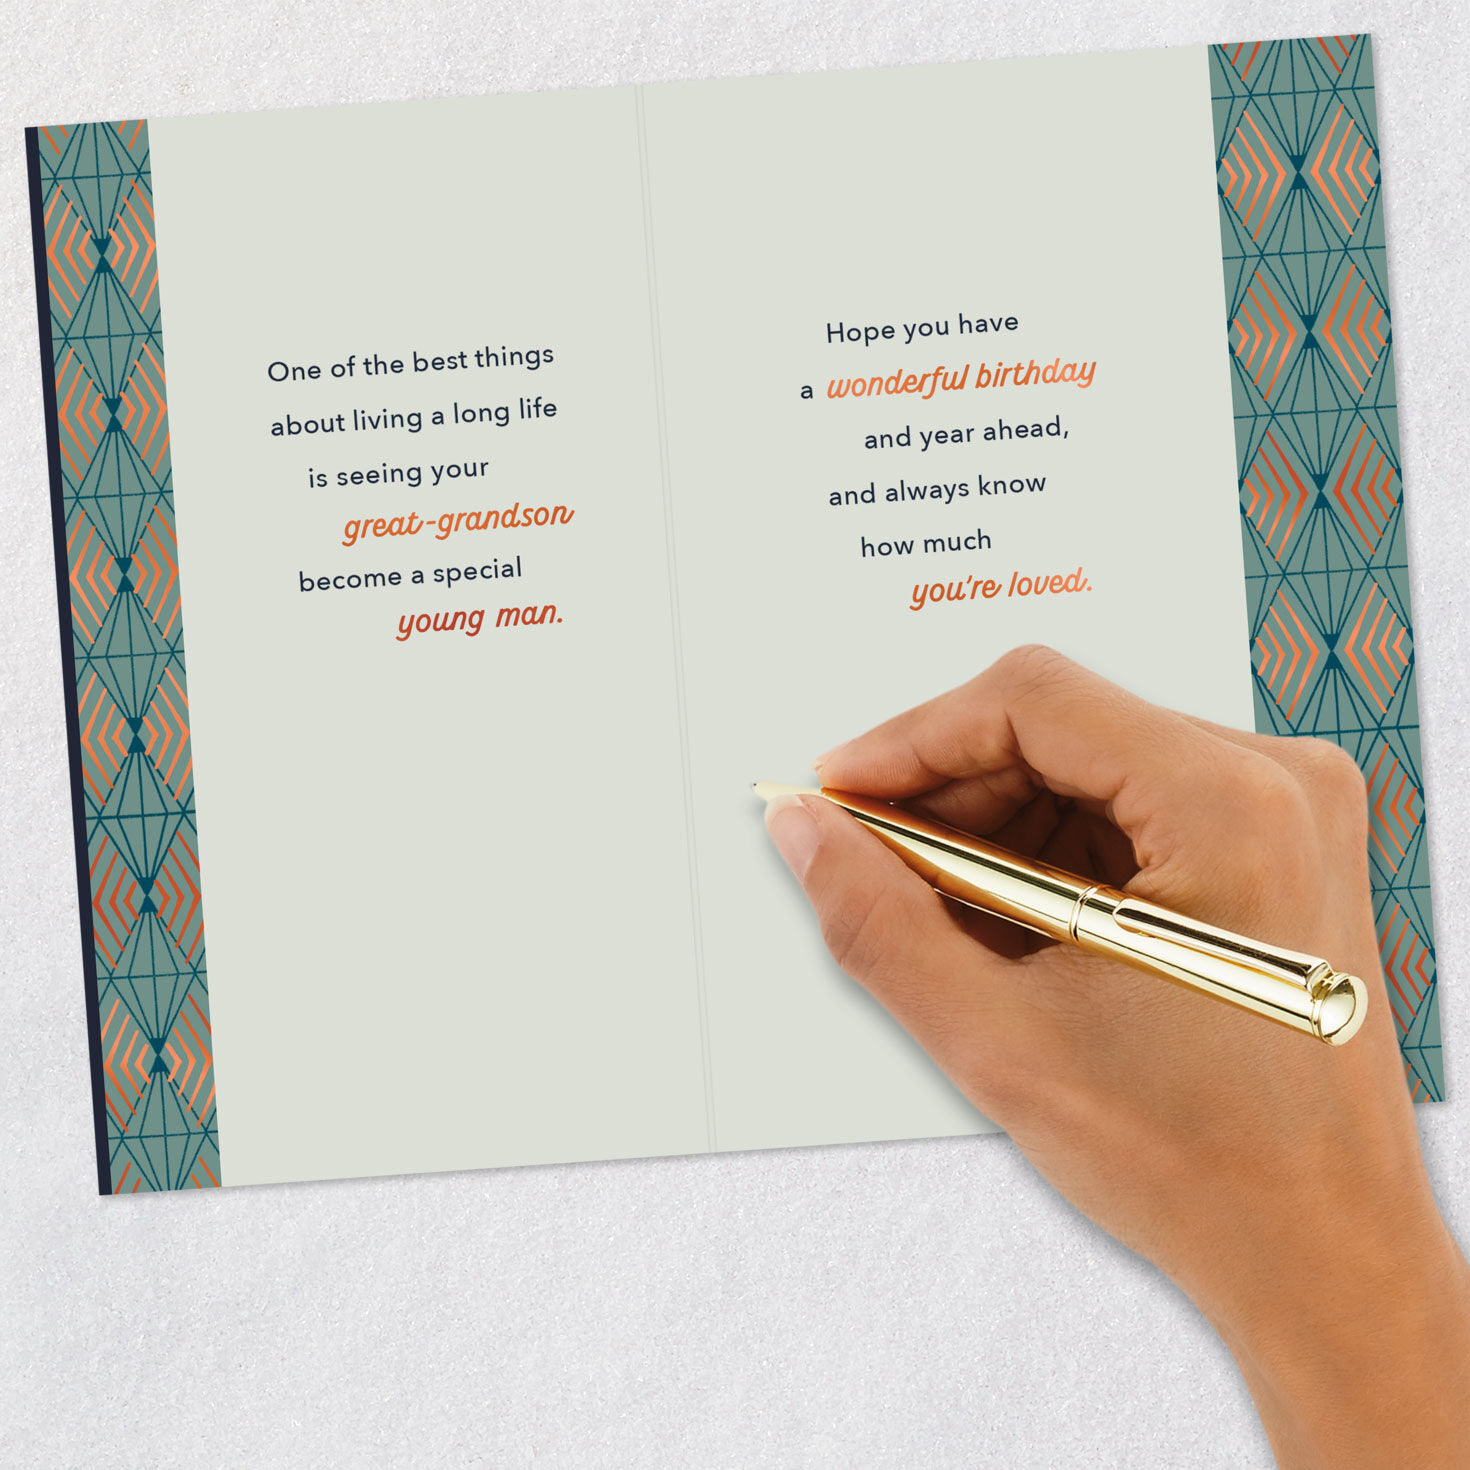 One of the best things
about living a long life
is seeing your
great-grandson
become a special
young man.
Hope you have
a wonderful birthday
and year ahead,
and always know
how much
you're loved.